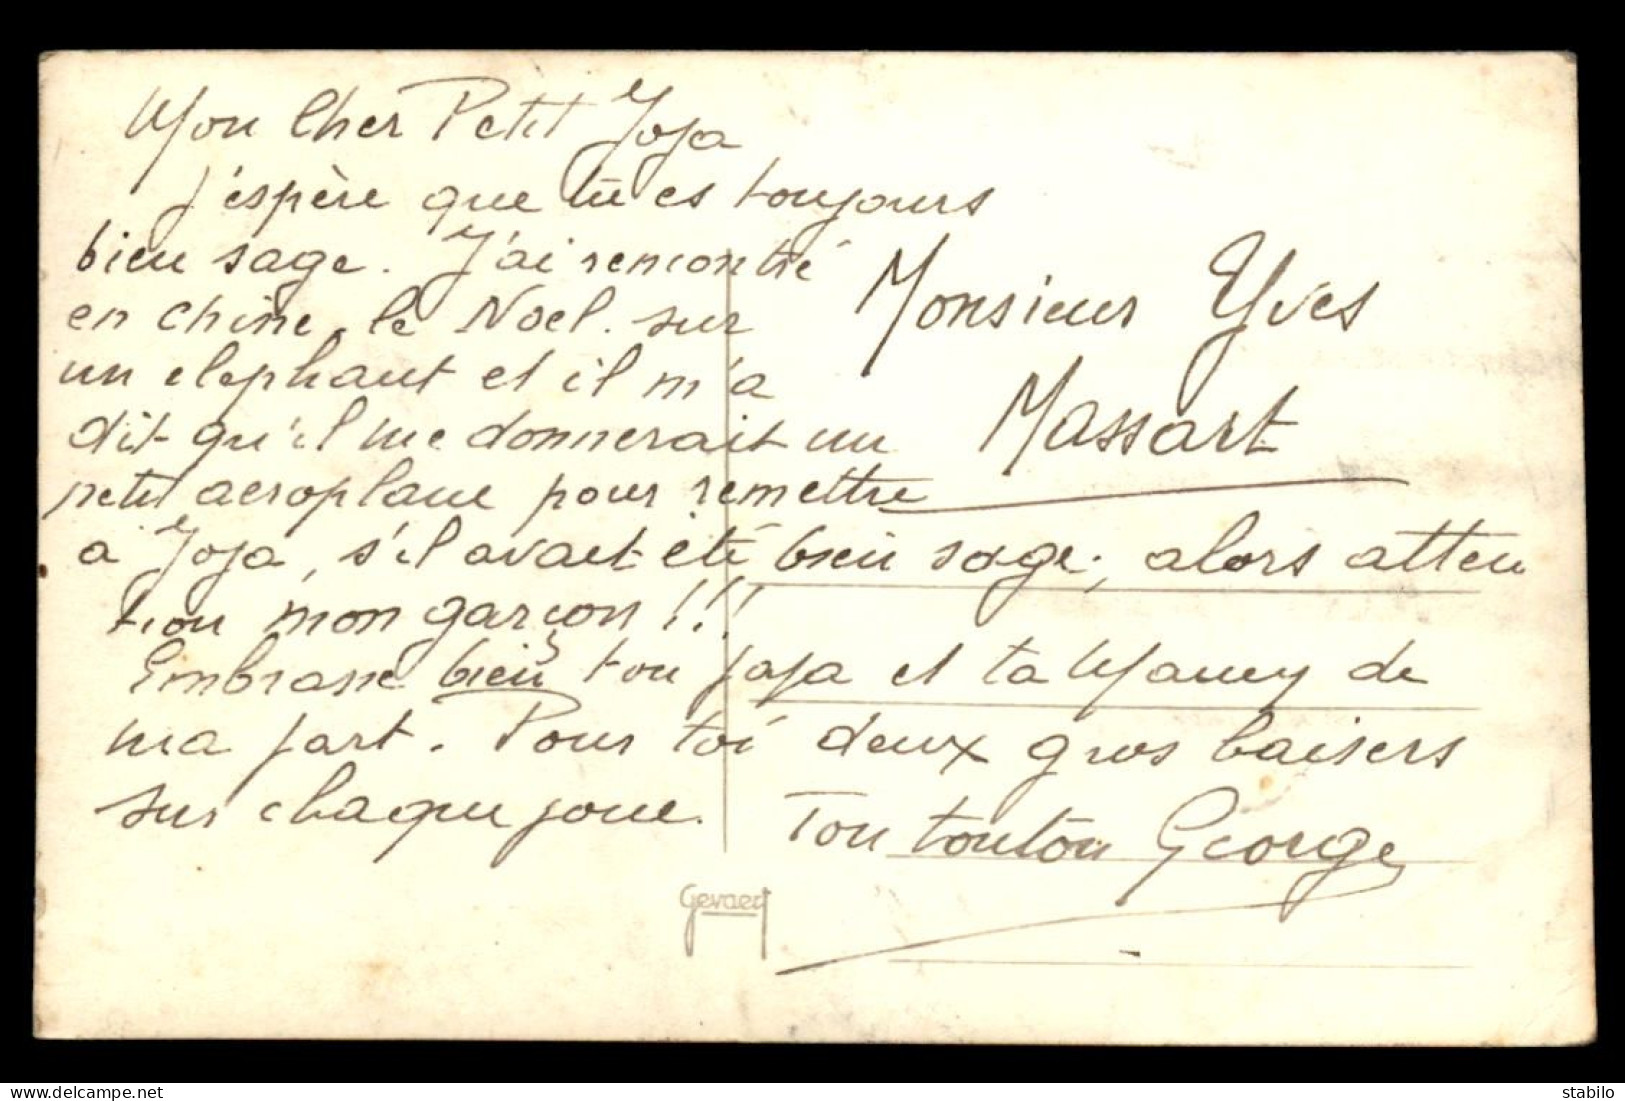 Mon Cher Petit Joja
J'espère que tu es toujours
bien sage. J'ai rencontré
en chine, le Noel. sur
un elephant et il m'a
dit qu'il me donnerait un
petit aeroplane pour remettre
a Joja, s'il avait été bien sage, alors atten
tion mon garçon !!!
Embrasse bien ton Jaja et ta Mamy de
ma part. Pour toi deux gros baisers
sur chaque joue.
Ton tonton George
Monsieur Yves
Massart
Gevaert
delcampe.net
stabilo